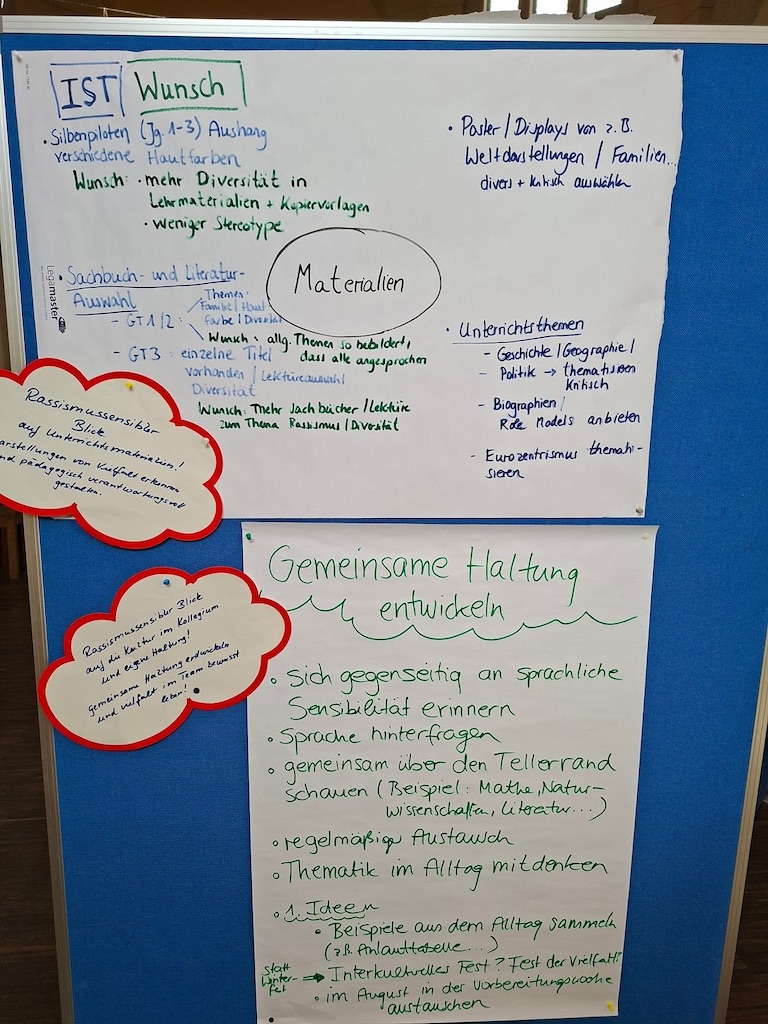 IST Wunsch
• Silbenpiloten (Jg. 1-3) Aushang
verschiedene Hautfarben
Wunsch: • mehr Diversität in
Lehrmaterialien + Kopiervorlagen
• weniger Stereotype
• Poster / Displays von z.B.
Weltdarstellungen / Familien...
divers + kritisch auswählen
Materialien
Legamaster
• Sachbuch- und Literatur-
Auswahl
- GT 1/2:
Themen:
Familie/Haut
Farbe/Diversität
Wunsch: allg. Themen so bebildert,
dass alle angesprochen
- GT3: einzelne Titel
vorhanden / Lektüreauswahl
Diversität
Wunsch: mehr Sachbücher / Lektüre
zum Thema Rassismus / Diversität
• Unterrichtsthemen
- Geschichte / Geographie /
- Politik → thematisieren
kritisch
- Biographien /
Role Models anbieten
- Eurozentrismus themati-
sieren
Rassismussensibler
Blick
auf Unterrichtsmaterialien!
arstellungen von Vielfalt erkennen
nd pädagogisch verantwortungsvoll
gestalten.
Rassismussensibler Blick
auf die Kultur im Kollegium
und eigene Haltung!
gemeinsame Haltung entwickeln
und vielfalt im Team bewusst
leben!
Gemeinsame Haltung
entwickeln
• Sich gegenseitig an sprachliche
Sensibilität erinnern
• Sprache hinterfragen
• gemeinsam über den Tellerrand
schauen (Beispiel: Mathe, Natur-
wissenschaften, Literatur...)
• regelmäßig Austausch
• Thematik im Alltag mitdenken
• 1. Ideen
• Beispiele aus dem Alltag sammeln
(z.B. Anlauttabelle...)
statt
Winter-
fest
⇒ Interkulturelles Fest? Fest der Vielfalt?
• im August in der Vorbereitungswoche
austauschen